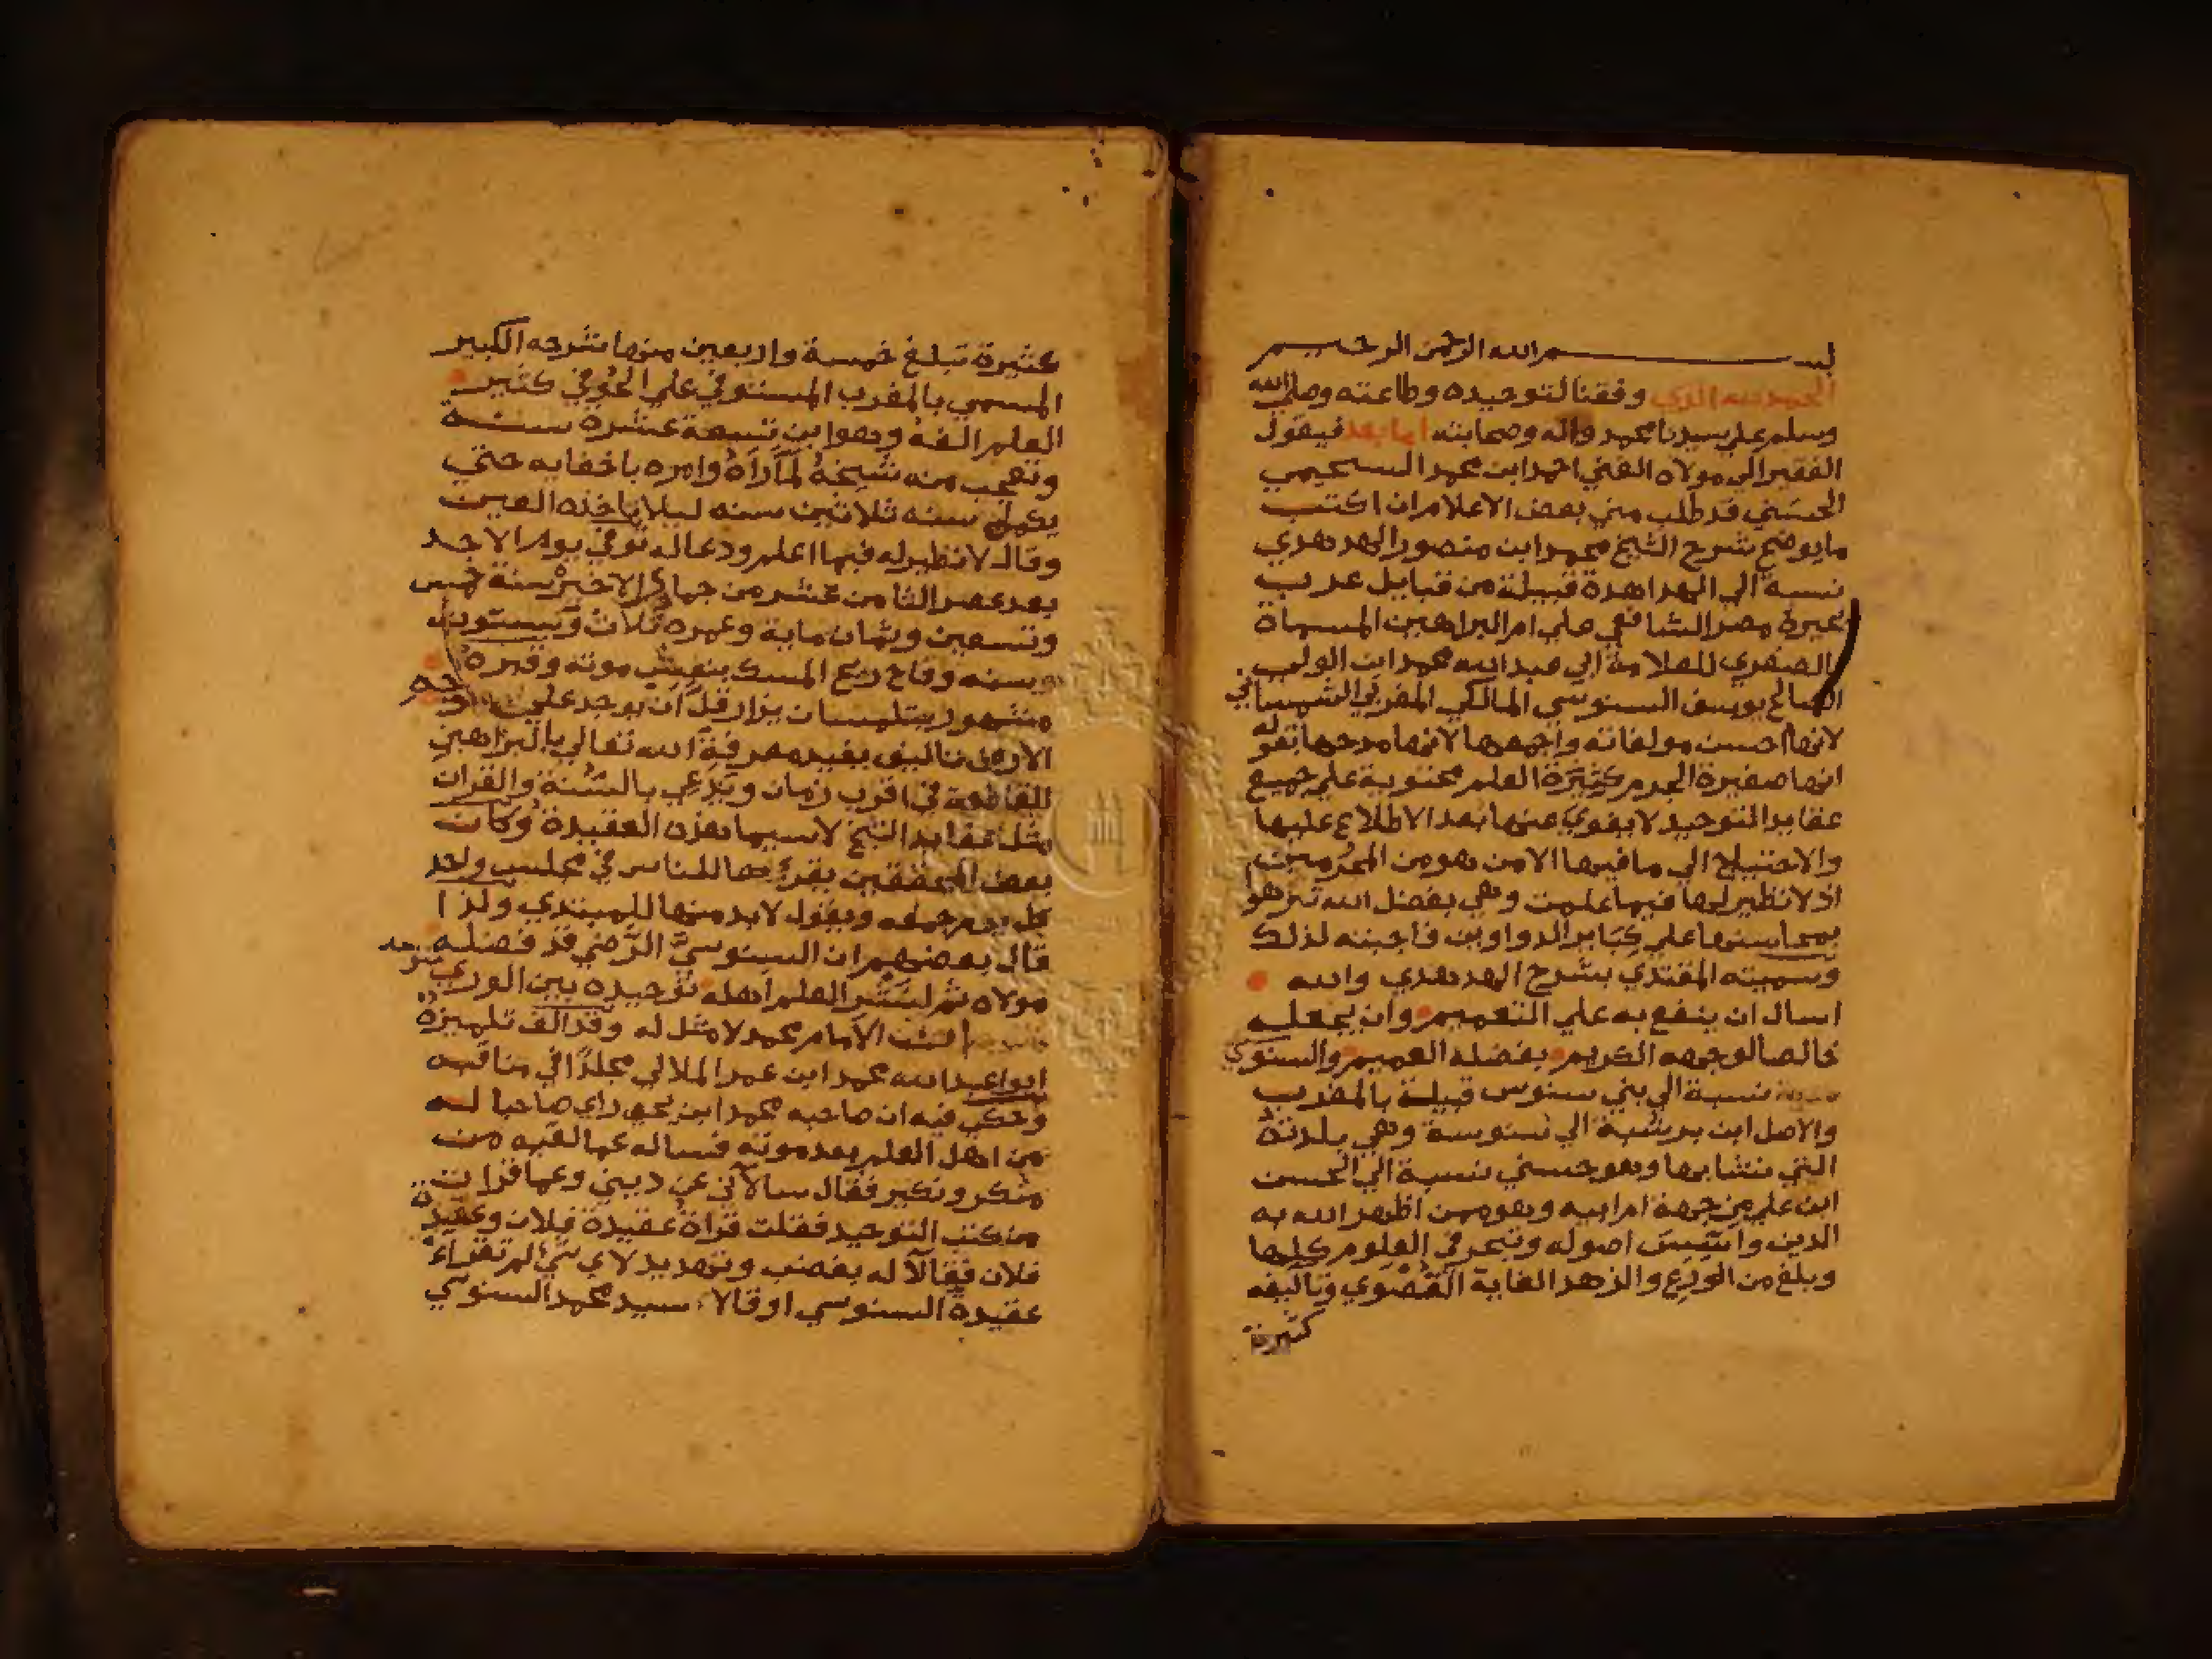 بسم الله الرحمن الرحيم
الحمد لله الذي وفقنا لتوحيده وطاعته وصلي الله
وسلم علي سيدنا محمد واله وصحابته اما بعد فيقول
الفقير الي مولاه الغني احمد ابن محمد السحيمي
الحسني قد طلب مني بعض الاعلام ان اكتب
ما يوضح شرح الشيخ محمد ابن منصور الهدهدي
نسبة الي الهداهدة قبيلة من قبايل عرب
بحيرة مصر الشافعي علي ام البراهين المسماة
بالصغري للعلامة ابي عبد الله محمد ابن الولي
الصالح يوسف السنوسي المالكي المغربي التلمساني
لانها احسن مولفاته واجمعها لانها مدحها بقوله
انها صغيرة الجرم كثيرة العلم محتوية علي جميع
عقايد التوحيد لا يغوي عنها بعد الاطلاع عليها
والاحتياج الي ما فيها الا من هو من المحرومين
اذ لا نظير لها فيها علمت وهي بفضل الله تزهوا
بمحاسنها علي كباير الدواوين فاجبته لذلك
وسميته المقتدي بشرح الهدهدي والله
اسال ان ينفع به علي التعميم وان يجعله
خالصا لوجهه الكريم بفضله العميم والسنوسي
نسبة الي بني سنوس قبيلة بالمغرب
والاصل ابن بريشبة الي سنوسة وهي بلدته
التي نشا بها وهو حسني نسبة الي الحسن
ابن علي من جهة ام ابيه وهو ممن اظهر الله به
الدين واسس اصوله وتبحر في العلوم كلها
وبلغ من الورع والزهد الغاية القصوي وتاليفه
كثيرة
عشيرة تبلغ خمسة واربعين منها شرحه الكبير
المسمي بالمغرب المستوفي علي الحوفي كثير
العلم الفه وهو ابن تسعة عشرة سنة
وتعجب منه شيخه لما راه وامره باخفايه حتي
يكمل سنه ثلاثين سنه ليلا ياخذه العين
وقال لا نظير له فيما اعلم ودعا له توفي يوم الاحد
بعد عصر الثامن عشر من جماد الاخير سنة خمس
وتسعين وثمان ماية وعمره ثلاث وستون
سنه وفاح ريح المسك بنعش موته وقبره
مشهور بتلمسان يزار قل ان يوجد علي وجه
الارض تاليف يفيد معرفة الله تعالي بالبراهين
القاطعة في اقرب زمان ويدعي بالسنة والقران
مثل عقايد الشيخ لا سيما هذه العقيدة وكان
بعض المحققين يقرءها للناس في مجلس واحد
كل يوم جمعه ويقول لابد منها للمبتدي ولذا
قال بعضهم ان السنوسي الرضي قد فضله
مولاه ثم لنشر العلم اهله توحيده بين الوري
الامام محمد لا مثل له وقد الف تلميذه
ابو عبد الله محمد ابن عمر الملالي مجلدا في مناقبه
وحكي فيه ان صاحبه محمد ابن يحي راي صاحبا له
من اهل العلم بعد موته فساله عما لقيه من
منكر ونكير فقال سالاني عن ديني وعما قرات
من كتب التوحيد فقلت قراة عقيدة فلان وعقيدة
فلان فقالا له بغضب وتهديد لاي شي لم تقراء
عقيدة السنوسي او قالا سيد محمد السنوسي